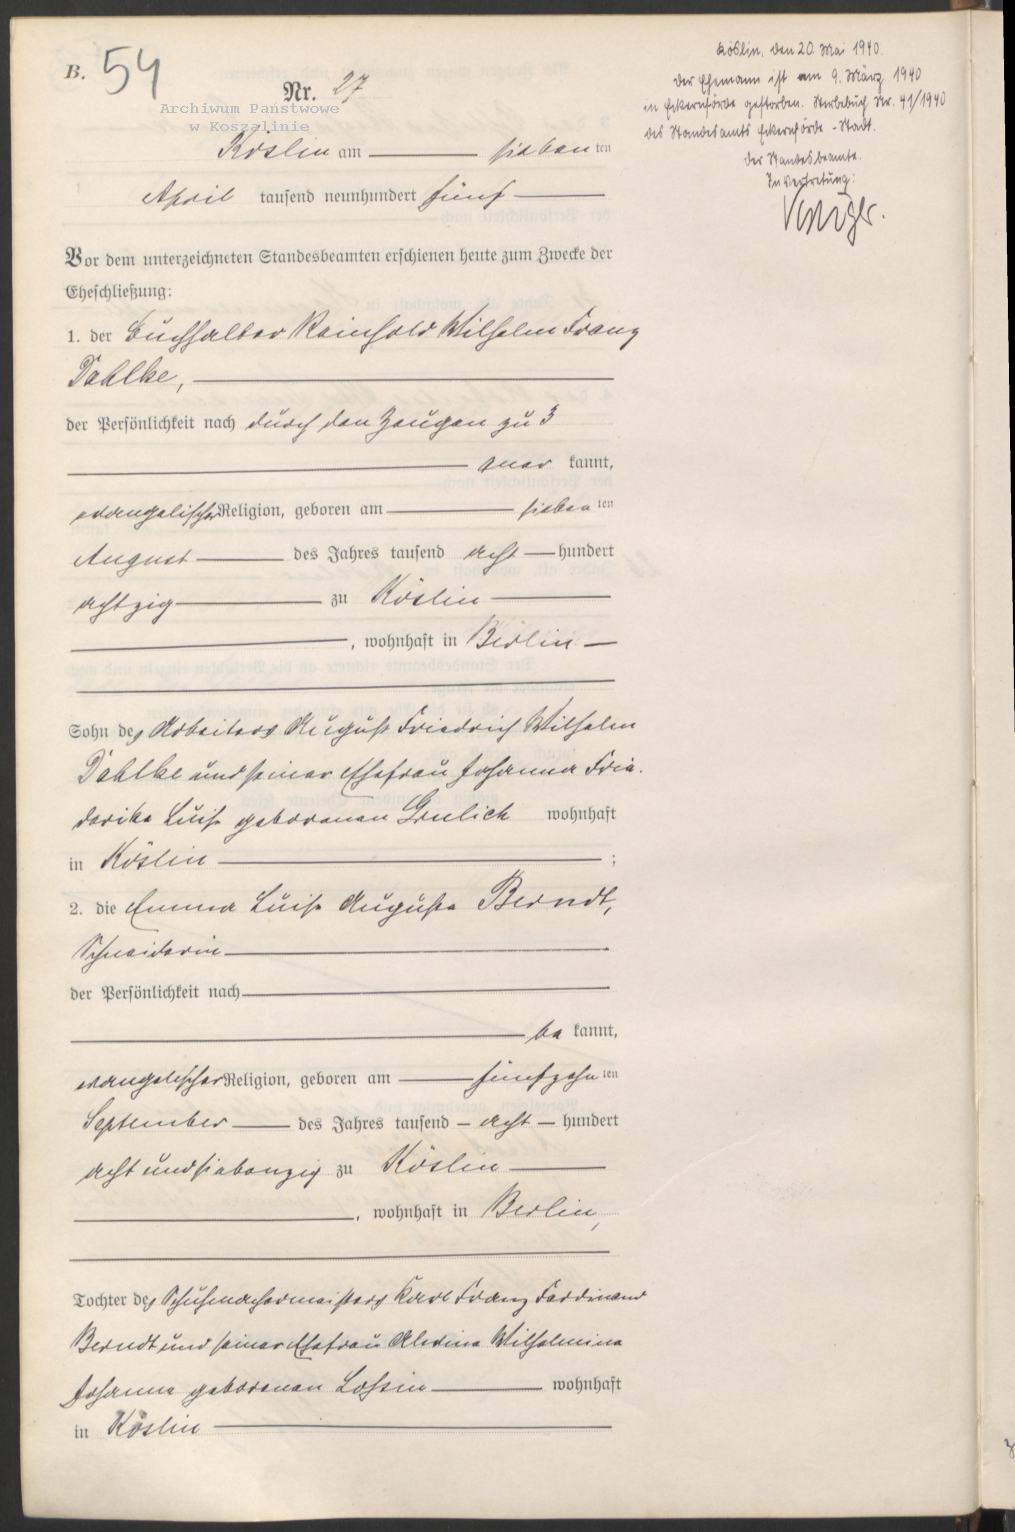 B. 54
Nr. 27
Archiwum Państwowe
w Koszalinie
Köslin am sieben ten
April tausend neunhundert fünf
Vor dem unterzeichneten Standesbeamten erschienen heute zum Zwecke der
Eheschließung:
1. der Buchhalter Reinhold Wilhelm Franz
Dahlke,
der Persönlichkeit nach durch den Zeugen zu 3
aner kannt,
evangelischer Religion, geboren am sieben ten
August des Jahres tausend acht hundert
achtzig zu Köslin
, wohnhaft in Berlin
Sohn des Arbeiters August Friedrich Wilhelm
Dahlke und seiner Ehefrau Johanna Frie-
derike Luise geborenen Grulich wohnhaft
in Köslin ;
2. die Emma Luise Auguste Berndt,
Schneiderin
der Persönlichkeit nach
be kannt,
evangelischer Religion, geboren am fünfzehn ten
September des Jahres tausend acht hundert
acht und siebenzig zu Köslin
, wohnhaft in Berlin,
Tochter des Schuhmachermeisters Karl Franz Ferdinand
Berndt und seiner Ehefrau Wilhelmine
Johanna geborenen wohnhaft
in Köslin
Köslin, den 20. Mai 1940.
Der Ehemann ist am 9. März 1940
in Eckernförde gestorben. Sterbebuch Nr. 41/1940
des Standesamts Eckernförde-Stadt.
Der Standesbeamte.
In Vertretung: